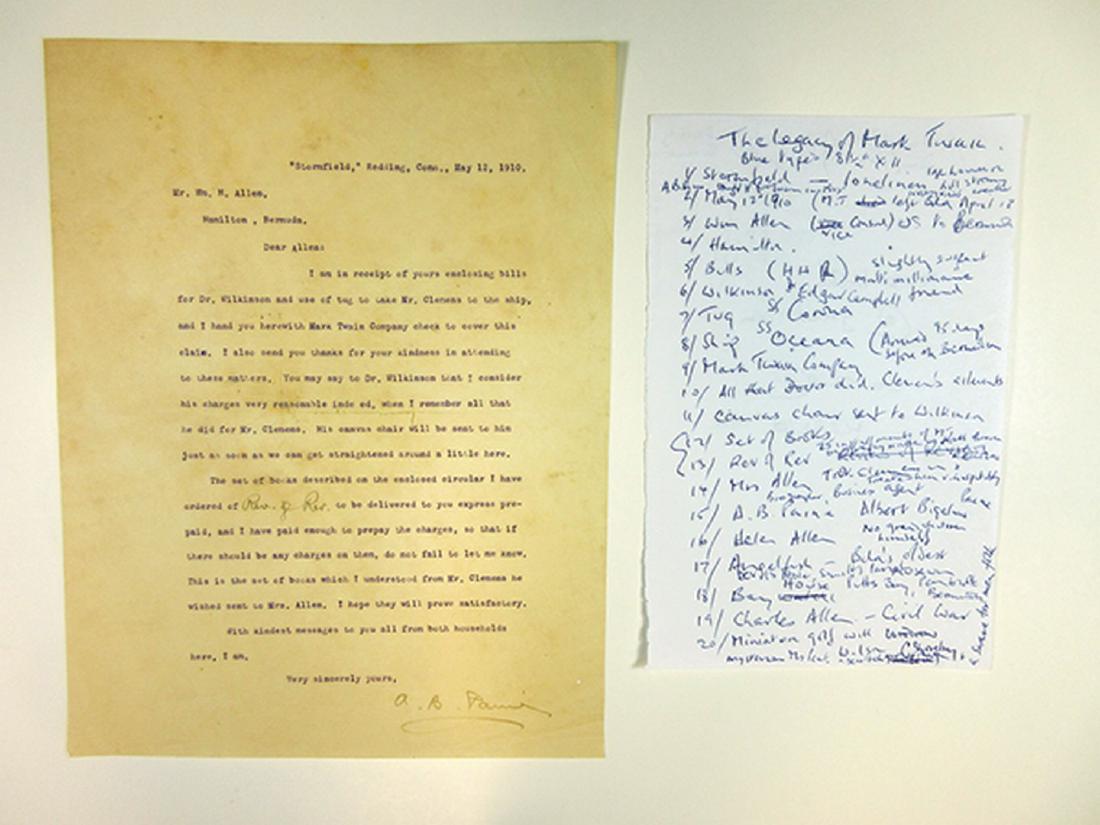 "Stormfield," Redding, Conn., May 12, 1910.
Mr. Wm. H. Allen,
Hamilton , Bermuda.
Dear Allen:
I am in receipt of yours enclosing bills
for Dr. Wilkinson and use of tug to take Mr. Clemens to the ship,
and I hand you herewith Mark Twain Company check to cover this
claim. I also send you thanks for your kindness in attending
to these matters. You may say to Dr. Wilkinson that I consider
his charges very reasonable inde ed, when I remember all that
he did for Mr. Clemens. His canvas chair will be sent to him
just as soon as we can get straightened around a little here.
The set of books described on the enclosed circular I have
ordered of Rev. of Rev. to be delivered to you express pre-
paid, and I have paid enough to prepay the charges, so that if
there should be any charges on them, do not fail to let me know.
This is the set of books which I understood from Mr. Clemens he
wished sent to Mrs. Allen. I hope they will prove satisfactory.
With kindest messages to you all from both households
here, I am,
Very sincerely yours,
A. B. Paine
The Legacy of Mark Twain.
Blue type? 8½" x 11
1/ Stormfield — loneliness
2/ May 12th 1910 (M.T. left April 12
3/ Wm Allen (vice Consul) US to Bermuda
4/ Hamilton.
5/ Bills (HHR) multi millionaire
6/ Wilkinson Edgar Campbell friend
7/ Tug SS Corona
8/ Ship SS Oceana (Arrived 95 days before on Bermudian
9/ Mark Twain Company
10/ All that Doctor did. Clemen's ailments
11/ Canvas chair sent to Wilkinson
12/ Set of Books
13/ Rev of Rev
14/ Mrs Allen
biographer, business agent
15/ A.B Paine Albert Bigelow Paine
16/ Helen Allen No grandchildren himself
17/ Angelfish
18/ Bay House Pitts Bay, Pembroke Bermuda
19/ Charles Allen — Civil War
20/ Miniature golf with